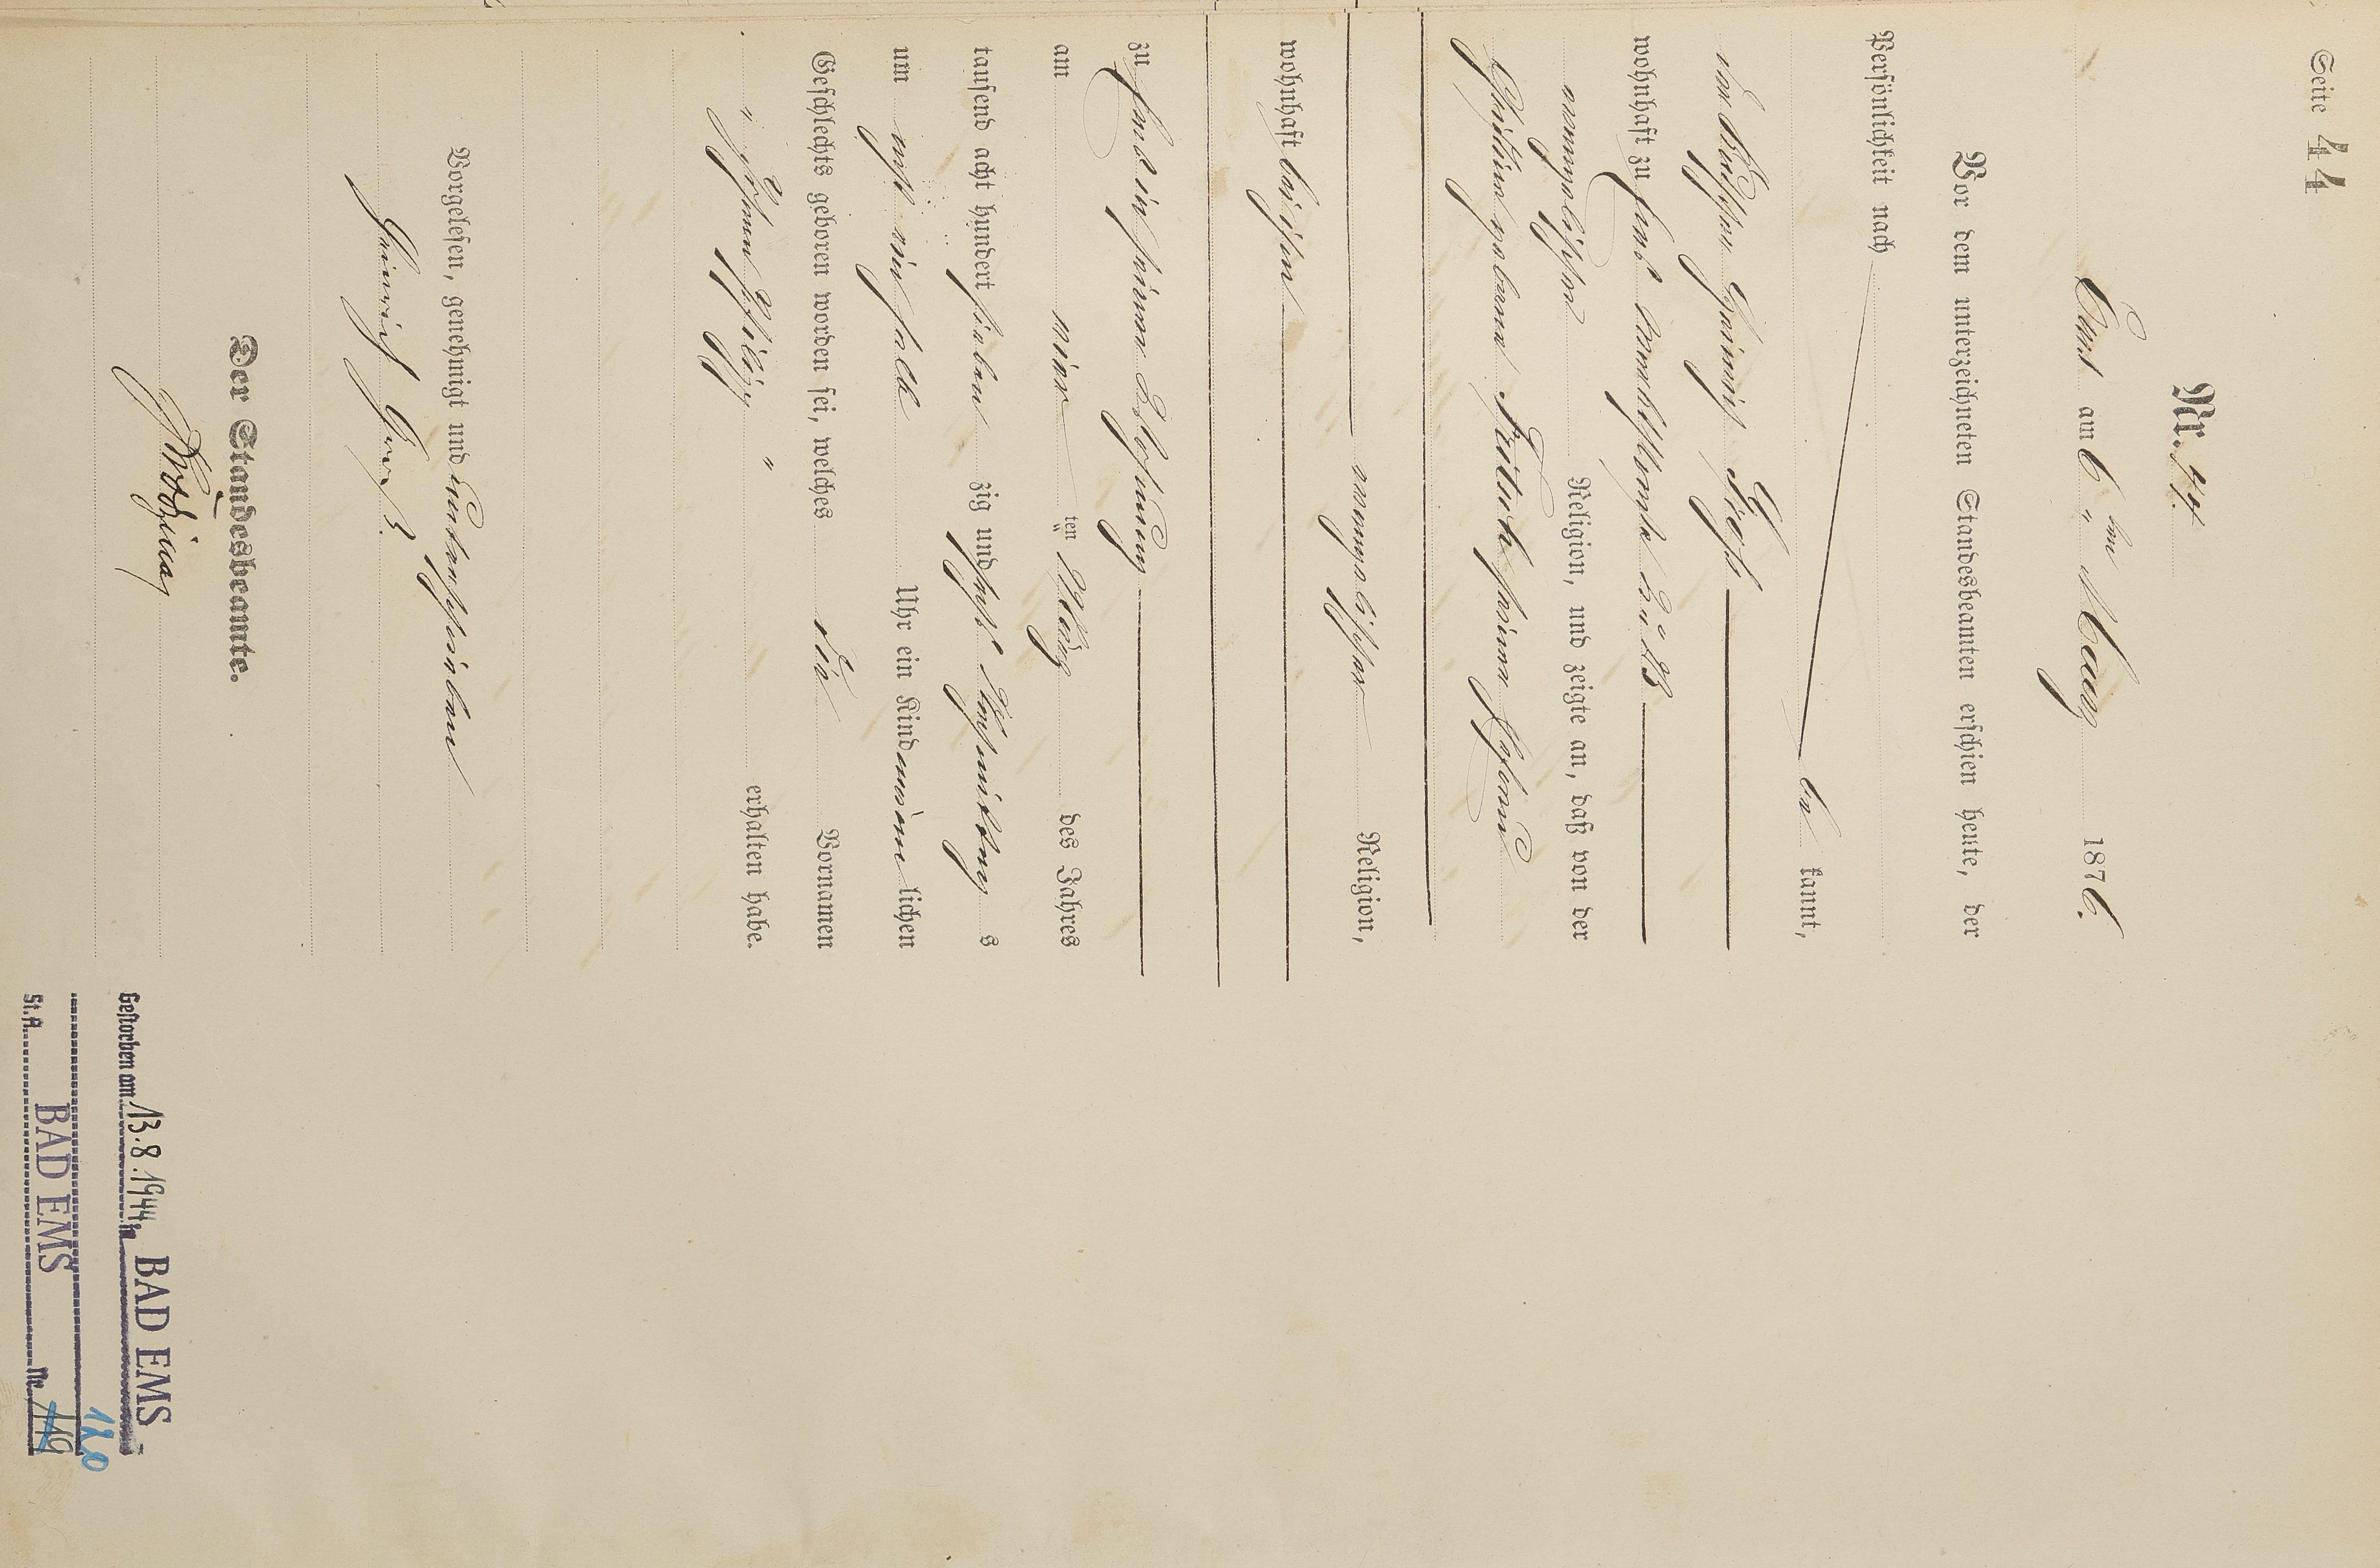 Seite 44
Nr. 44.
Ems am 6ten März 1876.
Vor dem unterzeichneten Standesbeamten erschien heute, der
Persönlichkeit nach
be kannt,
der Heinrich Groß
wohnhaft zu Ems
evangelischer Religion, und zeigte an, daß von der
geborene seiner Ehefrau
evangelischer Religion,
wohnhaft bei ihm
zu Ems in seiner Wohnung
am vier ten März des Jahres
tausend acht hundert sieben zig und sechs Nachmittags
um acht ein halb Uhr ein Kind männlichen
Geschlechts geboren worden sei, welches die Vornamen
" Johann Philipp " erhalten habe.
Vorgelesen, genehmigt und unterschrieben
Heinrich Groß.
Der Standesbeamte.
Gestorben am 13.8.1944 in BAD EMS
120
St.A. BAD EMS Nr. 119